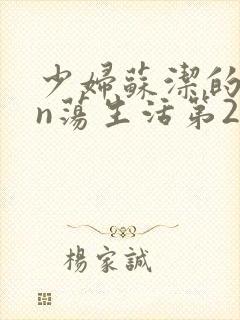 少婦蘇潔的
n蕩生活第2
楊家誠